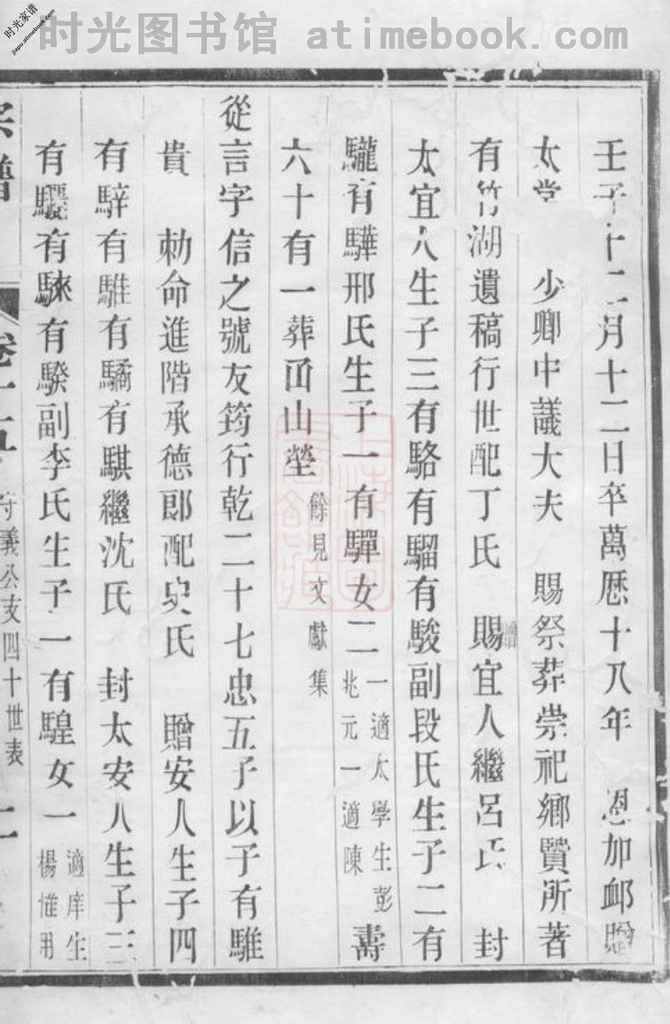 时光图书馆 atimebook.com
时光家谱
壬子十二月十二日卒萬歷十八年 恩加卹贈
太常 少卿中議大夫 賜祭葬崇祀鄉賢所著
有竹湖遺稿行世配丁氏 贈賜宜人繼呂氏 封
太宜人生子三有駱有騮有駿副段氏生子二有
驡有驊邢氏生子一有驒女二一適太學生彭兆元一適陳 壽
六十有一葬 山塋餘見文獻集
從言字信之號友筠行乾二十七忠五子以子有騅
貴 勅命進階承德郎配 氏 贈安人生子四
有騂有騅有驈有騏繼沈氏 封太安人生子三
有驪有騋有騤副李氏生子一有騜女一適庠生楊惟用
宗譜 卷十五 守義公支四十世表